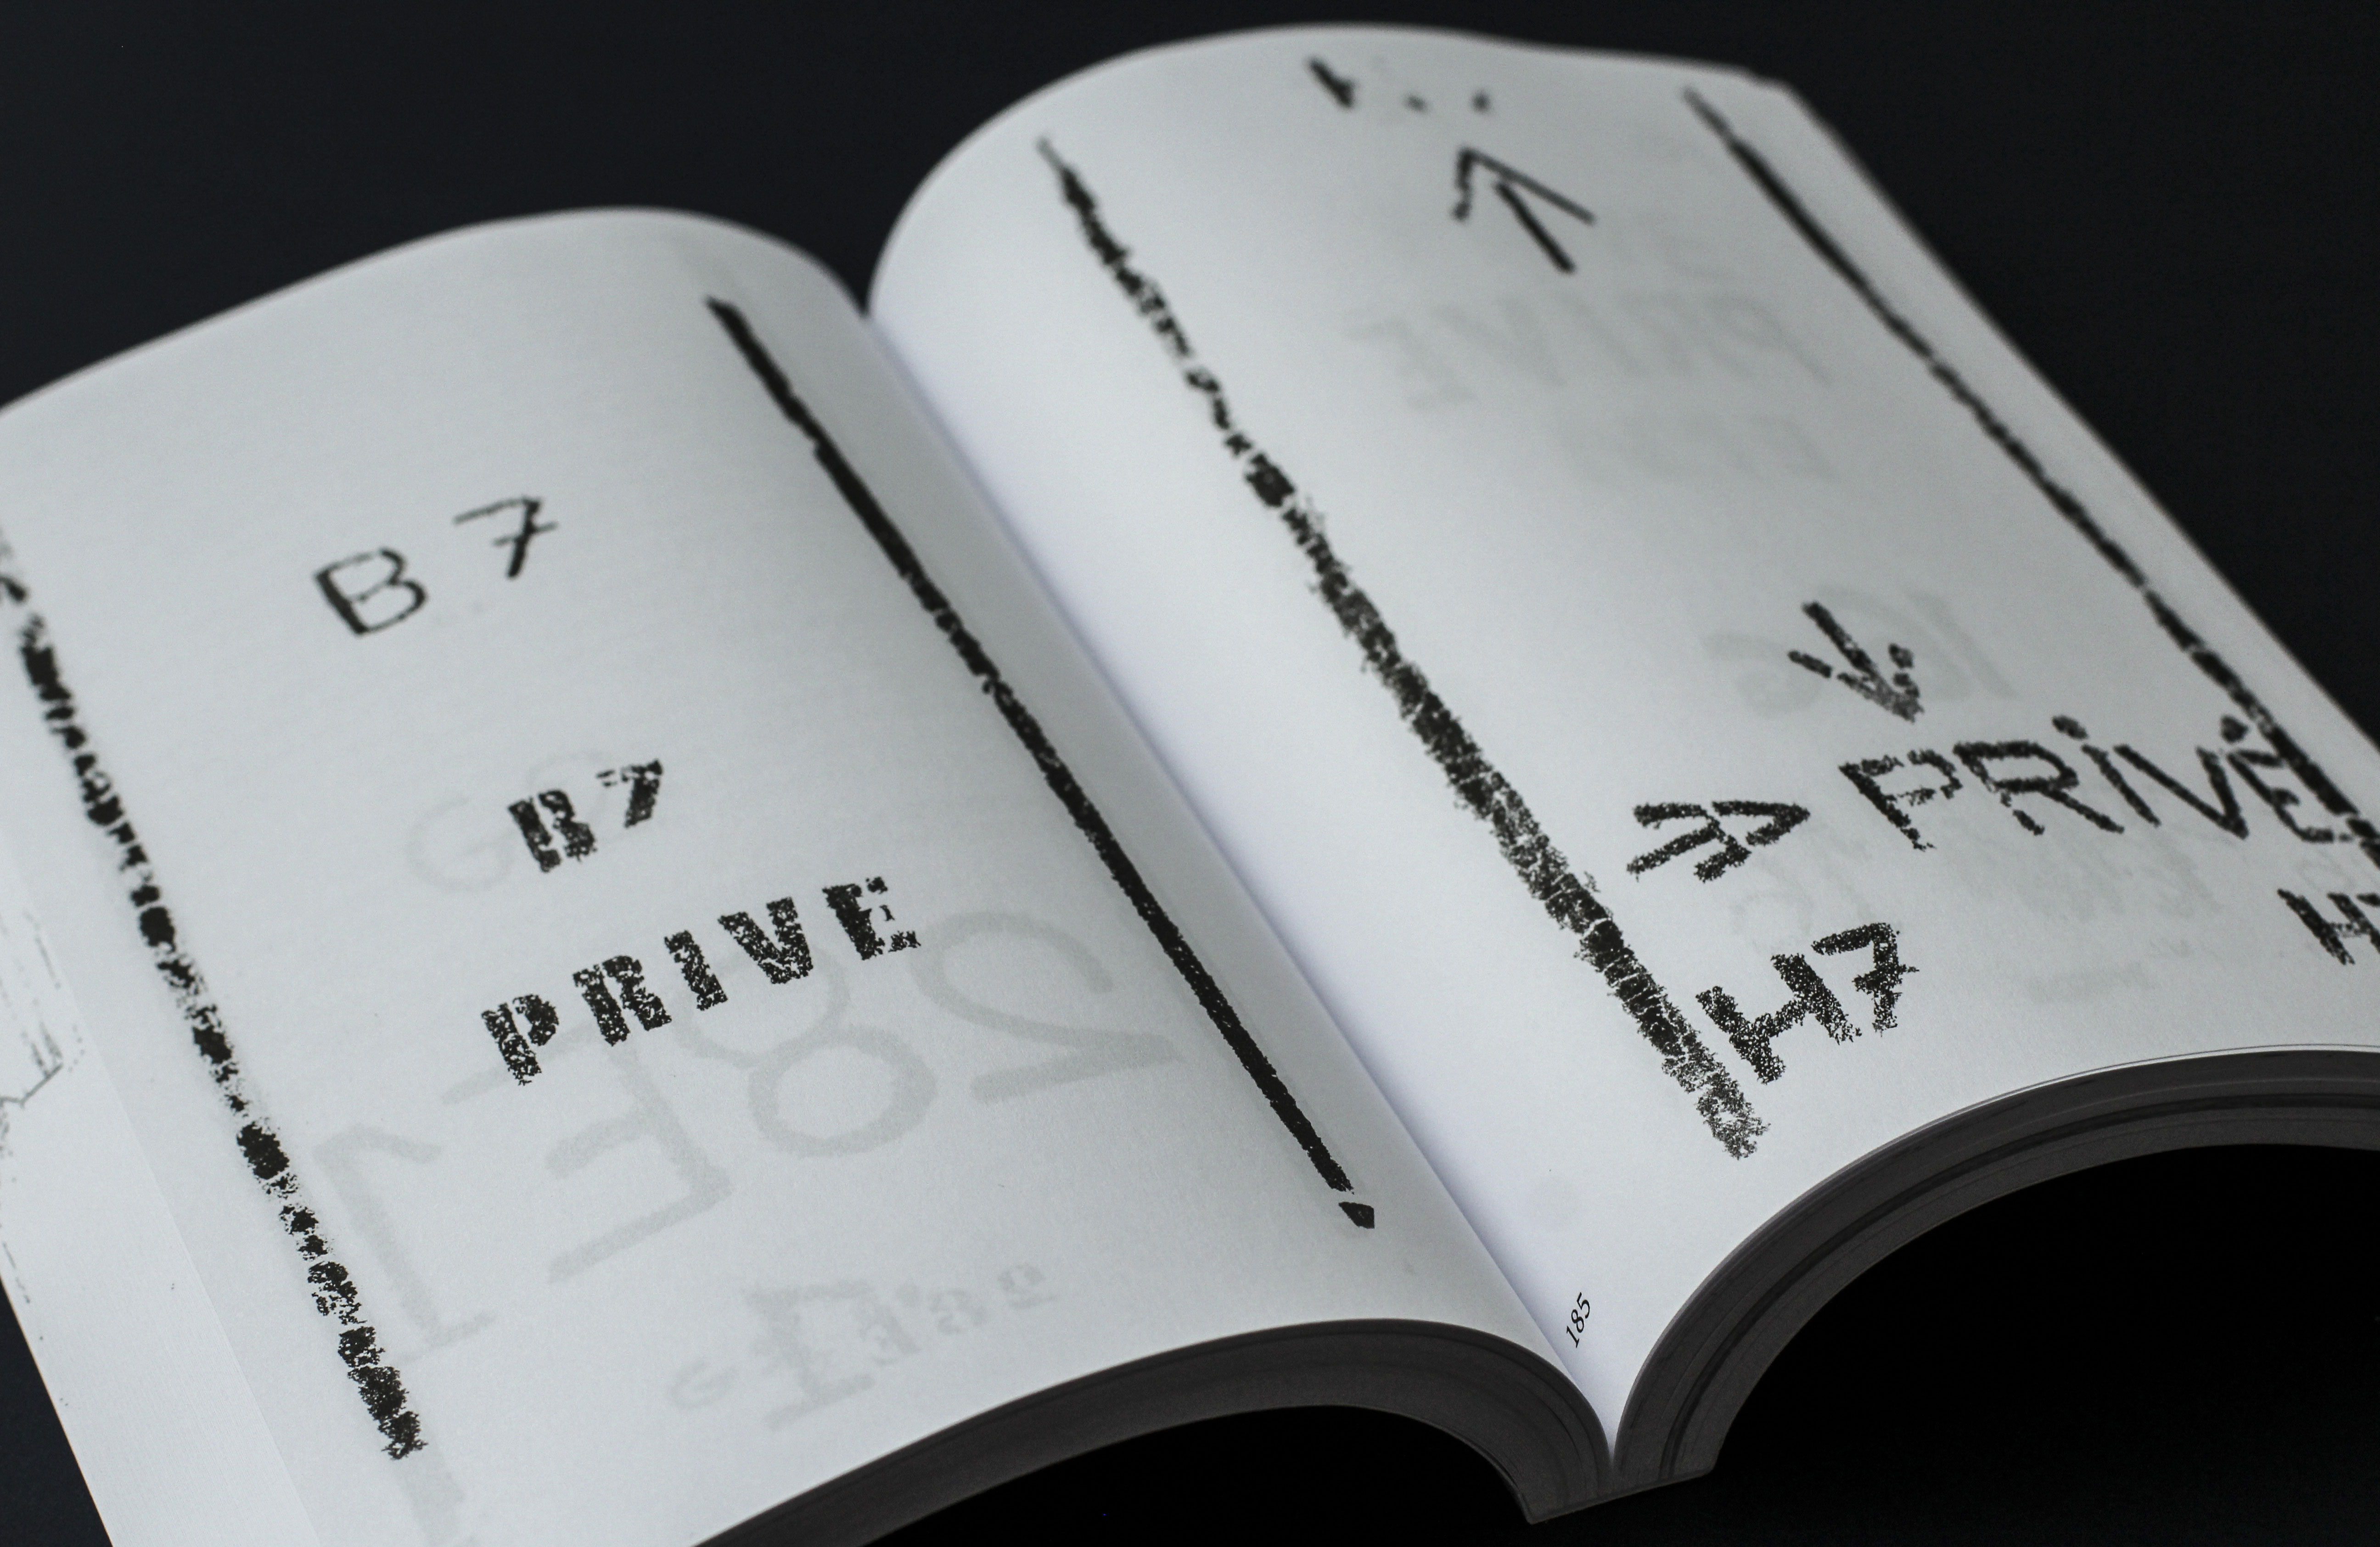 B 7
B7
PRIVE
PRIVÉ
H7
185